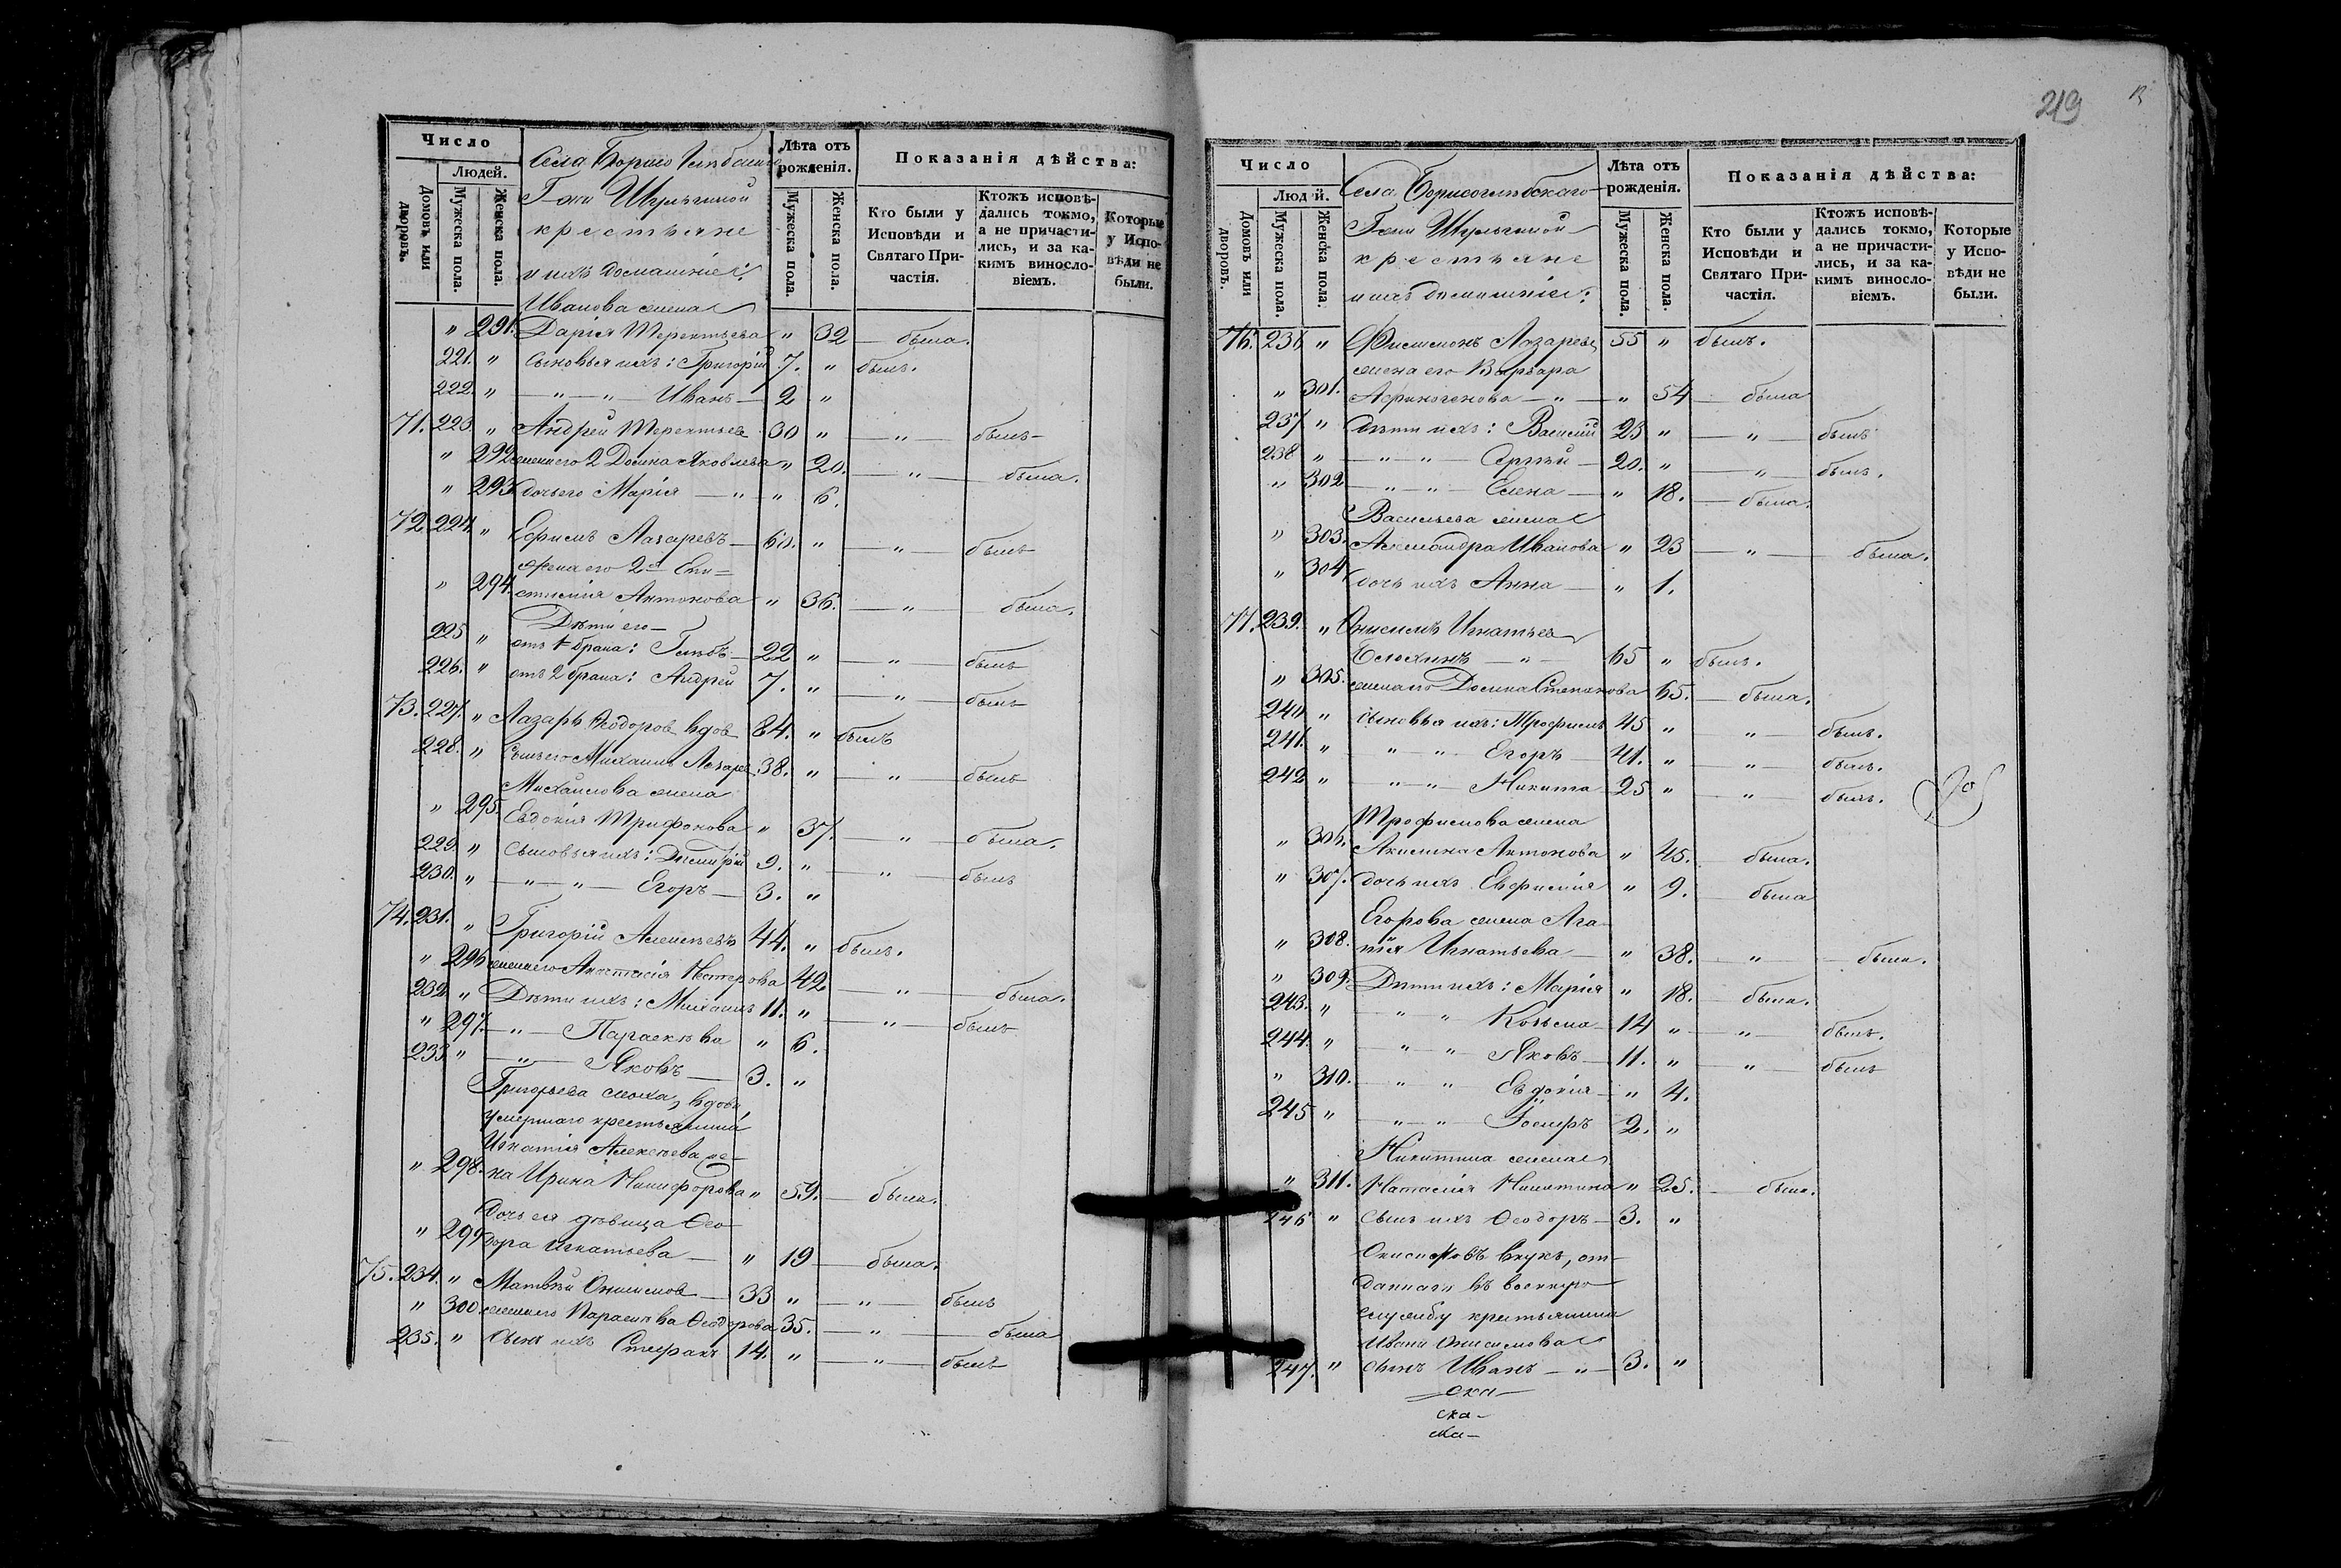 Число
Людей.
Домовъ или дворовъ.
Мужеска пола.
Женска пола.
Села Борисо Глѣбскаго
Г-жи Шулгиной
крестьяне
и ихъ домашніе:
Лѣта отъ рожденія.
Мужеска пола.
Женска пола.
Показанія дѣйства:
Кто были у Исповѣди и Святаго Причастія.
Ктожъ исповѣдались токмо, а не причастились, и за какимъ винословіемъ.
Которые у Исповѣди не были.
Иванова жена
" 291. Дарія Терентьева " 32 — была.
221. " Сыновья ихъ: Григорій 7. " былъ.
222. " — " — " — Иванъ — 2 "
71. 223. " Андрей Терентьевъ 30 " — " — былъ
" 292 жена его 2 Домна Яковлева " 20. — " — была.
" 293 дочь его Марія — " — " 6.
72. 224. " Ефимъ Лазаревъ — 60. " — " — былъ
жена его 2я Епи=
" 294. Антонова " 36. — " — была.
Дѣти его
225 " отъ 1 брака: Глѣбъ — 22 " — " — былъ
226. " отъ 2 брака: Андрей 7. " — " — былъ
73. 227. " Лазарь Ѳеодоров вдов 84. " былъ
228. " Сынъ его Михаилъ Лазарев 38. " — " — былъ
Михаилова жена
" 295. Евдокія Трифонова " 37. — " — была.
229. " Сыновья ихъ: Димитрій 9. " — " — былъ
230. " — " — " — Егоръ — 3. "
74. 231. " Григорій Алексѣевъ 44. " былъ.
" 296 жена его Анастасія Нестерова 42 — " — была.
232. " Дѣти ихъ: Михаилъ 11. " — " — былъ
" 297. — " — Параскѣва " 6.
233 " — " — Яковъ — 3. "
Григорьева сноха, вдова
умершаго крестьянина
Игнатія Алексѣева же-
" 298. на Ирина Никифорова " 59. — была.
Дочь ея дѣвица Ѳео
" 299 дора Игнатьева — " 19 — была.
75. 234. " Матвѣй Онисимов — 33 " — " — былъ
" 300. жена его Параскѣва Ѳеодорова 35. — " — была
235. " Сынъ ихъ Стефанъ 14. " — " — былъ
219
Число
Людй.
Домовъ или дворовъ.
Мужеска пола.
Женска пола.
Села Борисоглѣбскаго
Г-жи Шулгиной
крестьяне
и ихъ домашніе:
Лѣта отъ рожденія.
Мужеска пола.
Женска пола.
Показанія дѣйства:
Кто были у Исповѣди и Святаго Причастія.
Ктожъ исповѣдались токмо, а не причастились, и за какимъ винословіемъ.
Которые у Исповѣди не были.
76. 236 " Филимонъ Лазаревъ 55 " былъ.
жена его Варвара
" 301. Афиногенова — " — " 54 — была
237 " Дѣти ихъ: Василій 23 " — " — былъ
238 " — " — " — Сергѣй — 20. " — " — былъ.
" 302 — " — " — Елена — " 18. — была.
Васильева жена
" 303. Александра Иванова " 23 — " — была.
" 304. дочь ихъ Анна — " 1.
77. 239. " Онисимъ Игнатьев
Елохинъ — " — 65 " былъ.
" 305. жена его Домна Степанова 65. — была.
240 " Сыновья ихъ: Трофимъ 45 " — " — былъ.
241. " " — " Егоръ — 41. " — " — былъ.
242 " — " — " — Никита 25 " — " — былъ.
Трофимова жена
" 306. Акилина Антонова " 45. — была.
" 307. дочь ихъ Евфимія " 9. — была
Егорова жена Ага-
" 308. пія Игнатьева — " 38. — " — была.
" 309. Дѣти ихъ: Марія " 18. — была.
243. " " — " Козьма — 14 " — " — былъ.
244. " " — " — Яковъ — 11. " — " — былъ
" 310. — " — " Евдокія — " 4.
245 " " — " — Іосифъ 2. "
Никитина жена
" 311. Наталія Никитина " 25. — была.
246 " Сынъ ихъ Ѳеодоръ — 3. "
Онисимовъ внукъ, от-
даннаго въ военную
службу крестьянина
Ивана Онисимова
247. " сынъ Иванъ — " — 3. "